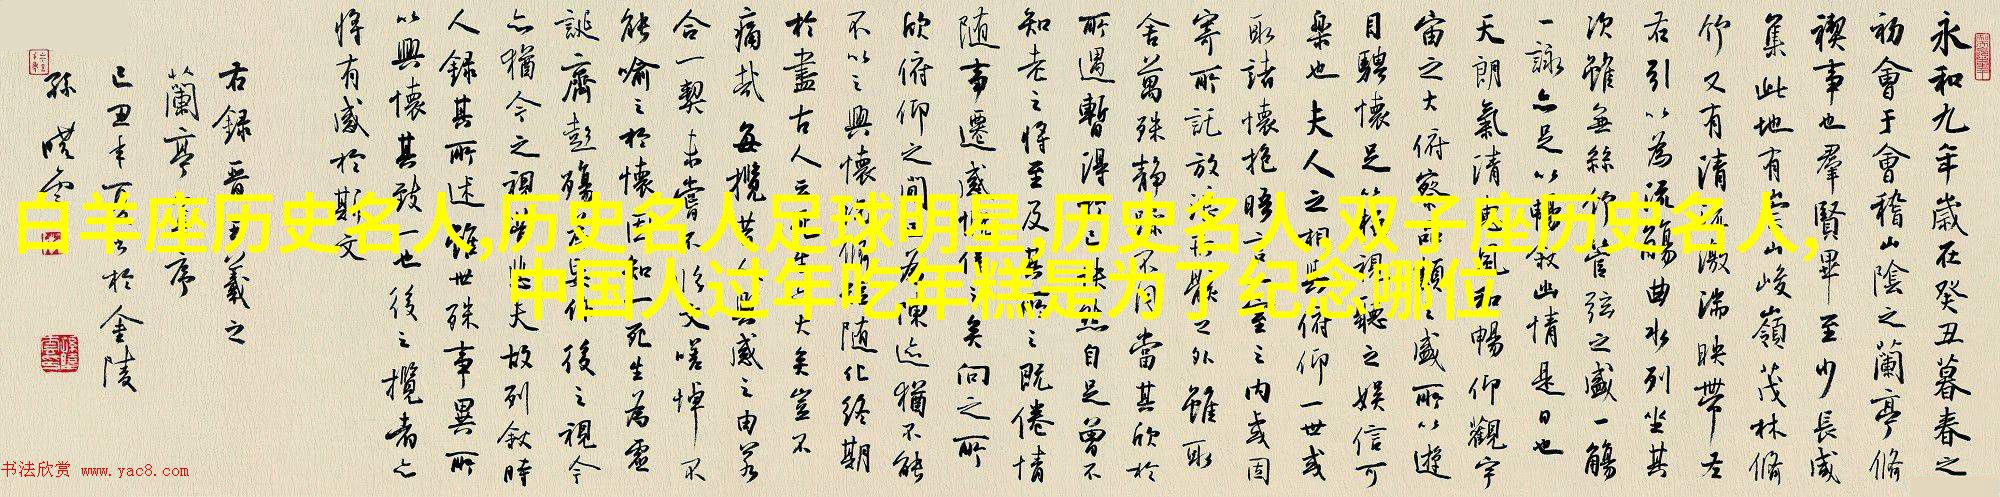 永和九年歲在癸丑暮春之
初會于會稽山陰之蘭亭脩
禊事也羣賢畢至少長咸
集此地有崇山峻嶺茂林脩
竹又有清流激湍映帶左
右引以為流觴曲水列坐其
次雖無絲竹管弦之盛一觴
一詠亦足以暢叙幽情是日也
天朗氣清惠風和暢仰觀宇
宙之大俯察品類之盛所以遊
目騁懷足以極視聽之娛信可
樂也夫人之相與俯仰一世或
取諸懷抱晤言一室之內或因
寄所託放浪形骸之外雖取
舍萬殊靜躁不同當其欣於
所遇暫得於己快然自足曾不
知老之將至及其所之既倦情
随事遷感慨係之矣向之所
欣俯仰之間以為陳迹猶不能
不以之興懷況脩短随化終期
於盡古人云死生亦大矣豈不
痛哉每攬昔人興感之由若
合一契未嘗不臨文嗟悼不
能喻之於懷固知一死生為虛
誕齊彭殤為妄作後之視今
亦猶今之視昔悲夫故列敘時
人録其所述雖世殊事異所
以興懷其致一也後之攬者亦
將有感於斯文
右録晋王羲之
蘭亭序
己丑年夏於金陵
孫曉雲
白羊座历史名人,历史名人足球明星,历史名人,双子座历史名人,
中国人过年吃年糕是为了纪念哪位
书法欣赏 www.yac8.com